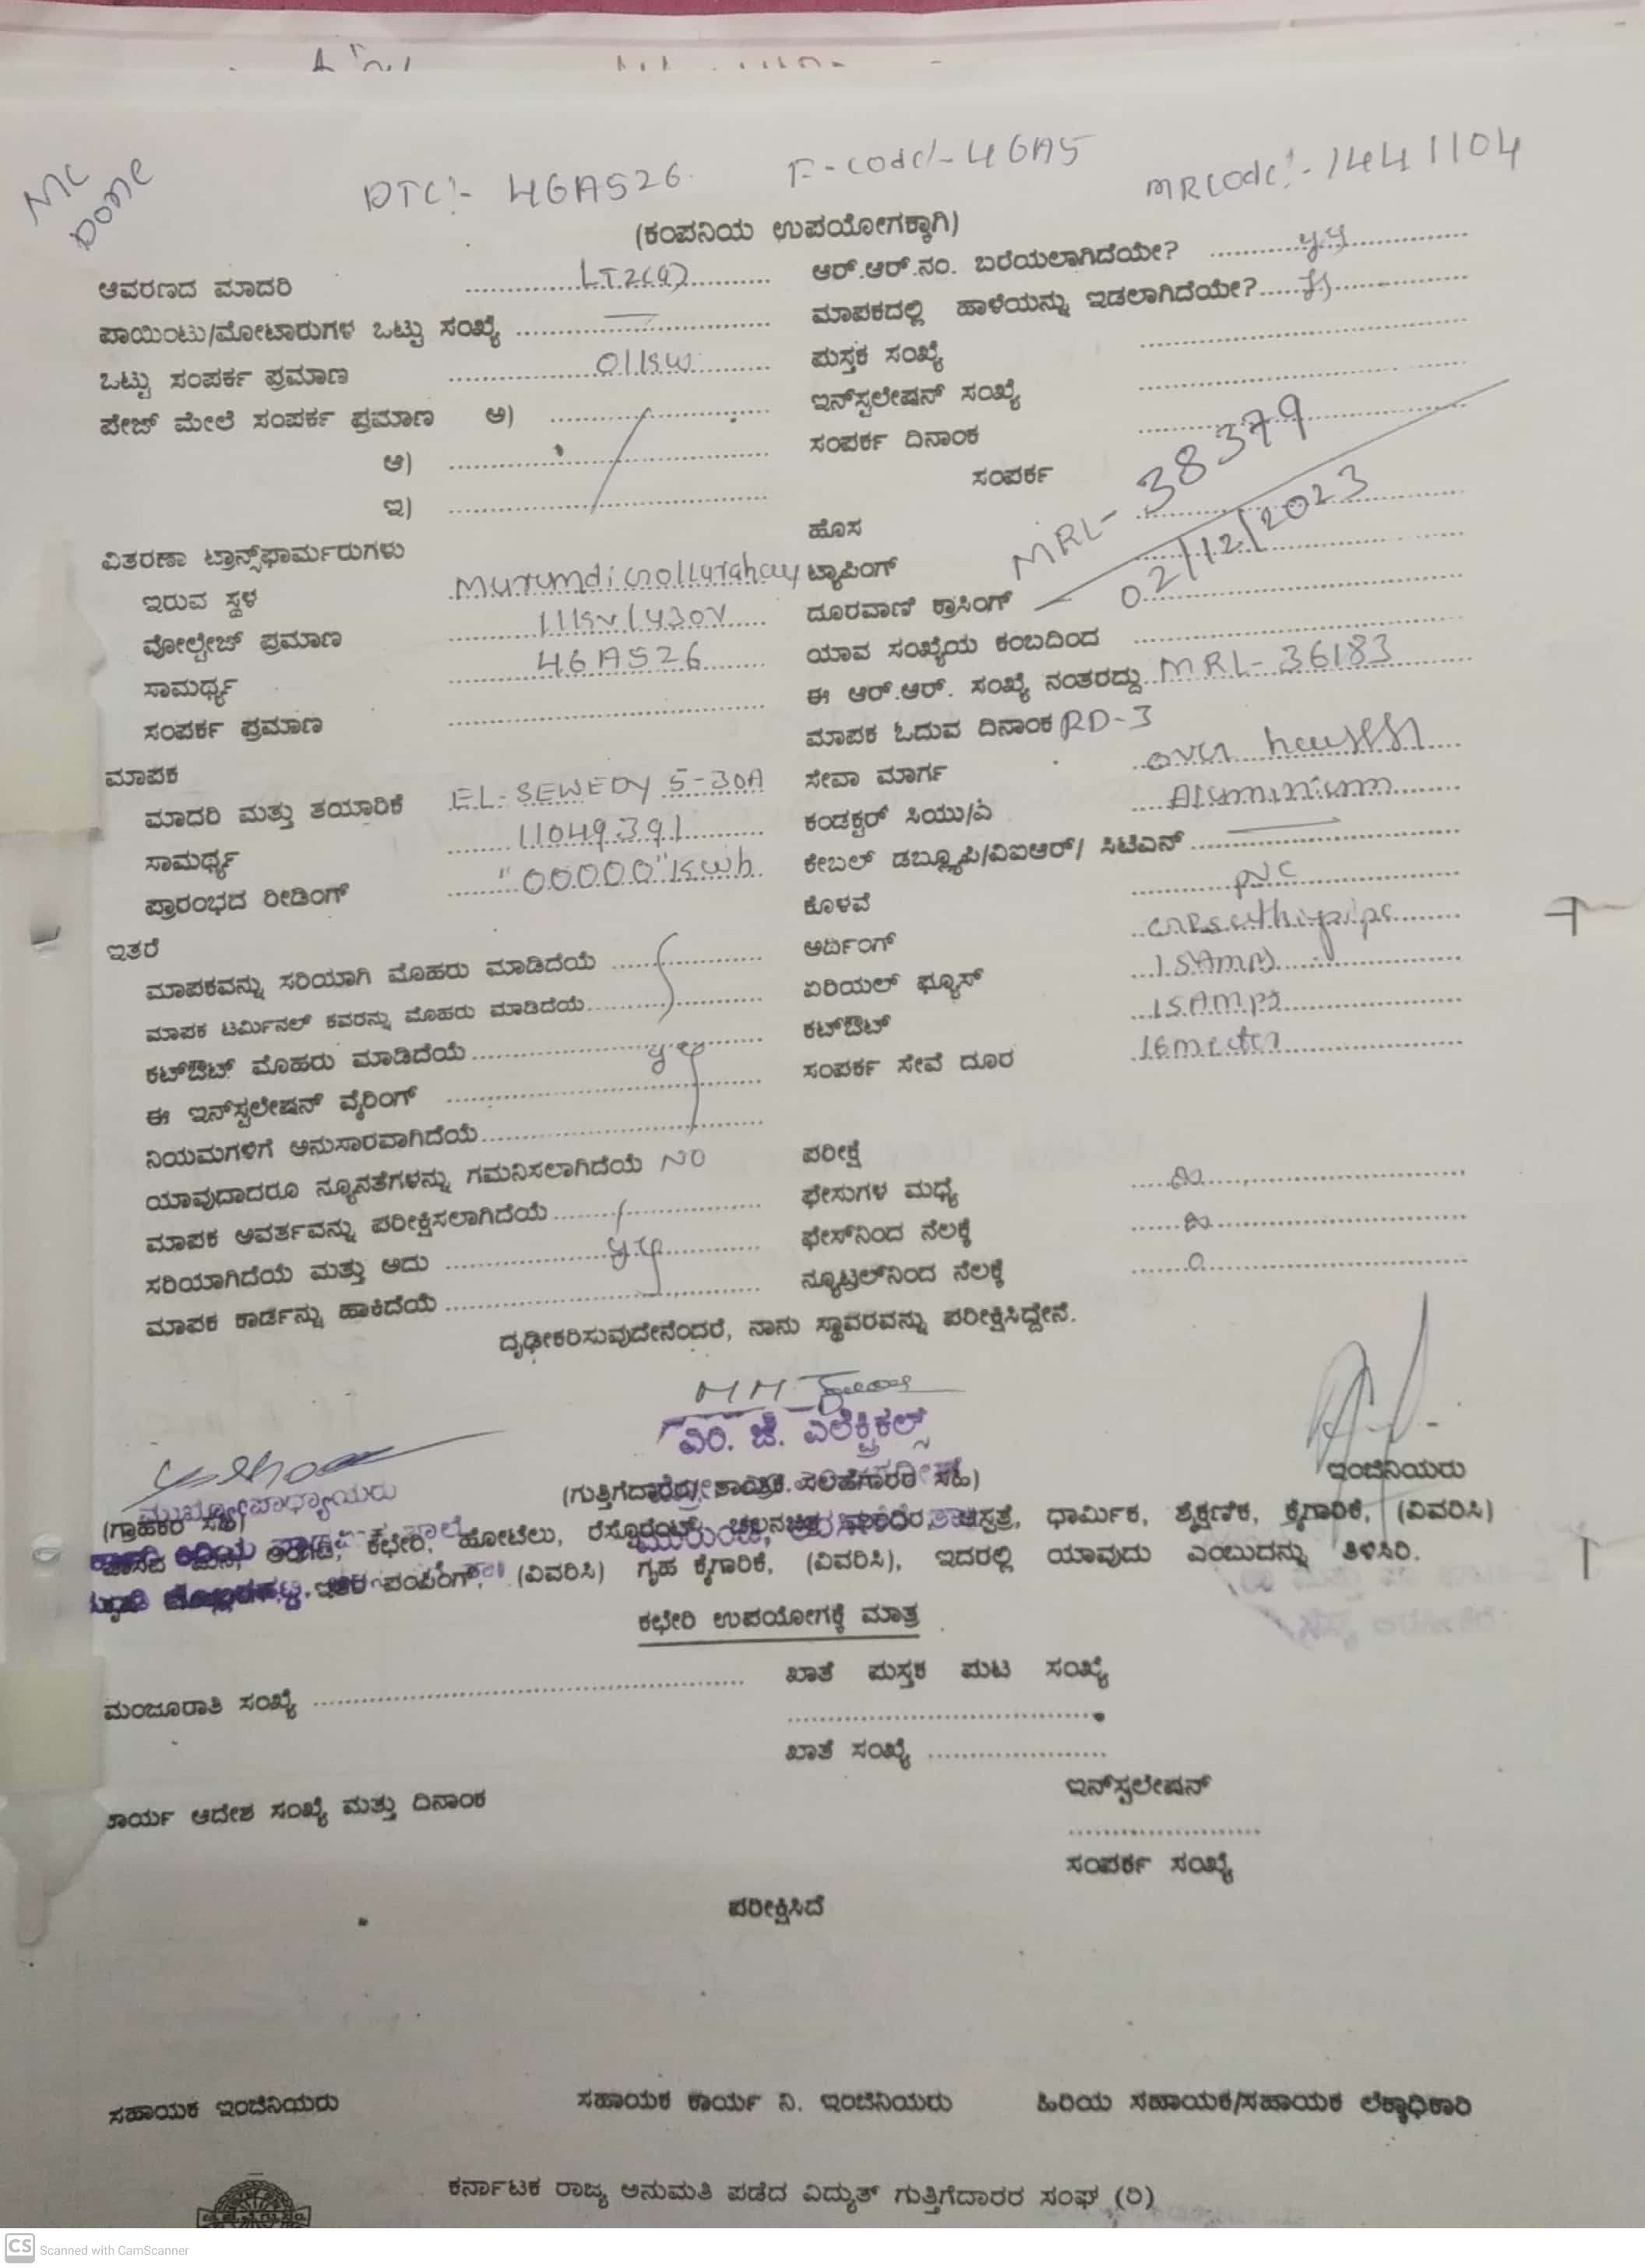 MC
DONE
DTC:- 4GA526 F-code:- 4GA5 MRcode:- 1441104
(ಕಂಪನಿಯ ಉಪಯೋಗಕ್ಕಾಗಿ)
ಆವರಣದ ಮಾದರಿ LT2(a) ಆರ್.ಆರ್.ನಂ. ಬರೆಯಲಾಗಿದೆಯೇ?
ಪಾಯಿಂಟು/ಮೋಟಾರುಗಳ ಒಟ್ಟು ಸಂಖ್ಯೆ — ಮಾಪಕದಲ್ಲಿ ಹಾಳೆಯನ್ನು ಇಡಲಾಗಿದೆಯೇ?
ಒಟ್ಟು ಸಂಪರ್ಕ ಪ್ರಮಾಣ 01kw ಪುಸ್ತಕ ಸಂಖ್ಯೆ
ಪೇಜ್ ಮೇಲೆ ಸಂಪರ್ಕ ಪ್ರಮಾಣ ಅ) ಇನ್‌ಸ್ಟಲೇಷನ್ ಸಂಖ್ಯೆ
ಆ) ಸಂಪರ್ಕ ದಿನಾಂಕ
ಇ) ಸಂಪರ್ಕ
MRL- 38379
02/12/2023
ಹೊಸ
ವಿತರಣಾ ಟ್ರಾನ್ಸ್‌ಫಾರ್ಮರುಗಳು
ಇರುವ ಸ್ಥಳ ಟ್ಯಾಪಿಂಗ್
ವೋಲ್ಟೇಜ್ ಪ್ರಮಾಣ 11kv/430V ದೂರವಾಣಿ ಕ್ರಾಸಿಂಗ್
ಸಾಮರ್ಥ್ಯ 4GA526 ಯಾವ ಸಂಖ್ಯೆಯ ಕಂಬದಿಂದ
ಸಂಪರ್ಕ ಪ್ರಮಾಣ ಈ ಆರ್.ಆರ್. ಸಂಖ್ಯೆ ನಂತರದ್ದು MRL- 36183
ಮಾಪಕ ಮಾಪಕ ಓದುವ ದಿನಾಂಕ RD-3
ಮಾದರಿ ಮತ್ತು ತಯಾರಿಕೆ EL-SEWEDY 5-30A ಸೇವಾ ಮಾರ್ಗ over
ಸಾಮರ್ಥ್ಯ 11049391 ಕಂಡಕ್ಟರ್ ಸಿಯು/ಎ Aluminium
ಪ್ರಾರಂಭದ ರೀಡಿಂಗ್ "00000" kwh ಕೇಬಲ್ ಡಬ್ಲ್ಯೂಪಿ/ವಿಐಆರ್/ ಸಿಟಿಎಸ್ —
ಇತರೆ ಕೊಳವೆ PVC
ಮಾಪಕವನ್ನು ಸರಿಯಾಗಿ ಮೊಹರು ಮಾಡಿದೆಯೆ ಅರ್ದಿಂಗ್
ಮಾಪಕ ಟರ್ಮಿನಲ್ ಕವರನ್ನು ಮೊಹರು ಮಾಡಿದೆಯೆ ಏರಿಯಲ್ ಫ್ಯೂಸ್ 15Amps
ಕಟ್‌ಔಟ್ ಮೊಹರು ಮಾಡಿದೆಯೆ ಕಟ್‌ಔಟ್ 15Amps
ಈ ಇನ್‌ಸ್ಟಲೇಷನ್ ವೈರಿಂಗ್ ಸಂಪರ್ಕ ಸೇವೆ ದೂರ 16meter
ನಿಯಮಗಳಿಗೆ ಅನುಸಾರವಾಗಿದೆಯೆ
ಯಾವುದಾದರೂ ನ್ಯೂನತೆಗಳನ್ನು ಗಮನಿಸಲಾಗಿದೆಯೆ NO ಪರೀಕ್ಷೆ
ಮಾಪಕ ಆವರ್ತವನ್ನು ಪರೀಕ್ಷಿಸಲಾಗಿದೆಯೆ ಫೇಸುಗಳ ಮಧ್ಯೆ ∞
ಸರಿಯಾಗಿದೆಯೆ ಮತ್ತು ಅದು ಫೇಸ್‌ನಿಂದ ನೆಲಕ್ಕೆ ∞
ಮಾಪಕ ಕಾರ್ಡನ್ನು ಹಾಕಿದೆಯೆ ನ್ಯೂಟ್ರಲ್‌ನಿಂದ ನೆಲಕ್ಕೆ 0
ದೃಢೀಕರಿಸುವುದೇನೆಂದರೆ, ನಾನು ಸ್ಥಾವರವನ್ನು ಪರೀಕ್ಷಿಸಿದ್ದೇನೆ.
ಎಂ. ಜಿ. ಎಲೆಕ್ಟ್ರಿಕಲ್ಸ್
ಮುಖ್ಯೋಪಾಧ್ಯಾಯರು ಇಂಜಿನಿಯರು
(ಗ್ರಾಹಕರ ಸಹಿ) (ಗುತ್ತಿಗೆದಾರರು/ತಾಂತ್ರಿಕ ಸಲಹೆಗಾರರ ಸಹಿ)
ವಾಸದ ಮನೆ, ಅಂಗಡಿ, ಕಛೇರಿ, ಹೋಟೆಲು, ರೆಸ್ಟೊರೆಂಟ್, ಚಲನಚಿತ್ರ ಮಂದಿರ, ಆಸ್ಪತ್ರೆ, ಧಾರ್ಮಿಕ, ಶೈಕ್ಷಣಿಕ, ಕೈಗಾರಿಕೆ, (ವಿವರಿಸಿ)
ಇತರ ಪಂಪಿಂಗ್, (ವಿವರಿಸಿ) ಗೃಹ ಕೈಗಾರಿಕೆ, (ವಿವರಿಸಿ), ಇದರಲ್ಲಿ ಯಾವುದು ಎಂಬುದನ್ನು ತಿಳಿಸಿರಿ.
ಕಛೇರಿ ಉಪಯೋಗಕ್ಕೆ ಮಾತ್ರ
ಮಂಜೂರಾತಿ ಸಂಖ್ಯೆ ಖಾತೆ ಪುಸ್ತಕ ಪುಟ ಸಂಖ್ಯೆ
ಖಾತೆ ಸಂಖ್ಯೆ
ಕಾರ್ಯ ಆದೇಶ ಸಂಖ್ಯೆ ಮತ್ತು ದಿನಾಂಕ ಇನ್‌ಸ್ಟಲೇಷನ್
ಸಂಪರ್ಕ ಸಂಖ್ಯೆ
ಪರೀಕ್ಷಿಸಿದೆ
ಸಹಾಯಕ ಇಂಜಿನಿಯರು ಸಹಾಯಕ ಕಾರ್ಯ ನಿ. ಇಂಜಿನಿಯರು ಹಿರಿಯ ಸಹಾಯಕ/ಸಹಾಯಕ ಲೆಕ್ಕಾಧಿಕಾರಿ
ಕರ್ನಾಟಕ ರಾಜ್ಯ ಅನುಮತಿ ಪಡೆದ ವಿದ್ಯುತ್ ಗುತ್ತಿಗೆದಾರರ ಸಂಘ (ರಿ)
CS Scanned with CamScanner